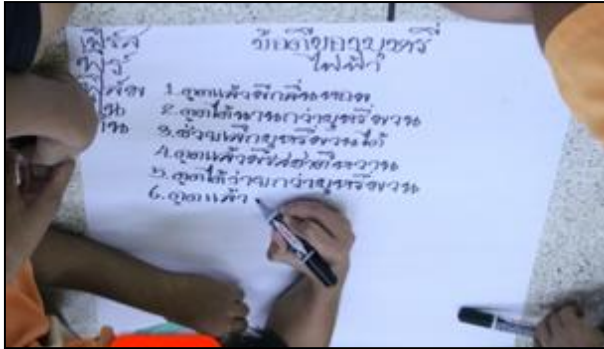 เฟิร์ส
พร
ข้อดีของบุหรี่
ไฟฟ้า
1.ดูดแล้วมีกลิ่นหอม
2.ดูดได้นานกว่าบุหรี่มวน
3.ช่วยเลิกบุหรี่มวนได้
4.ดูดแล้วมีรสชาติหวาน
5.ดูดได้ง่ายกว่าบุหรี่มวน
6.ดูดแล้ว